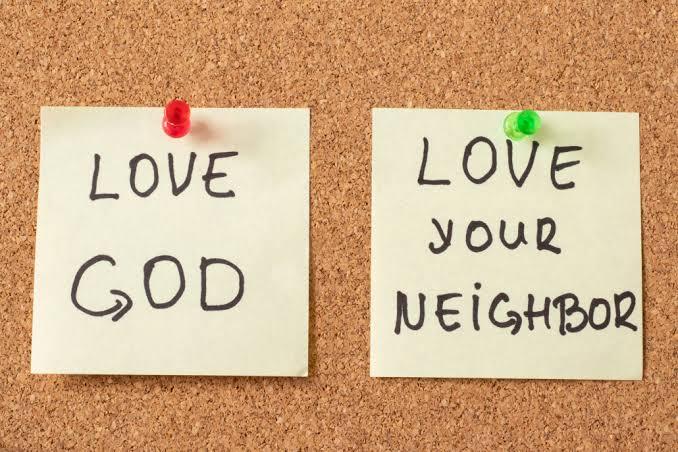 LOVE
GOD
LOVE
YOUR
NEIGHBOR